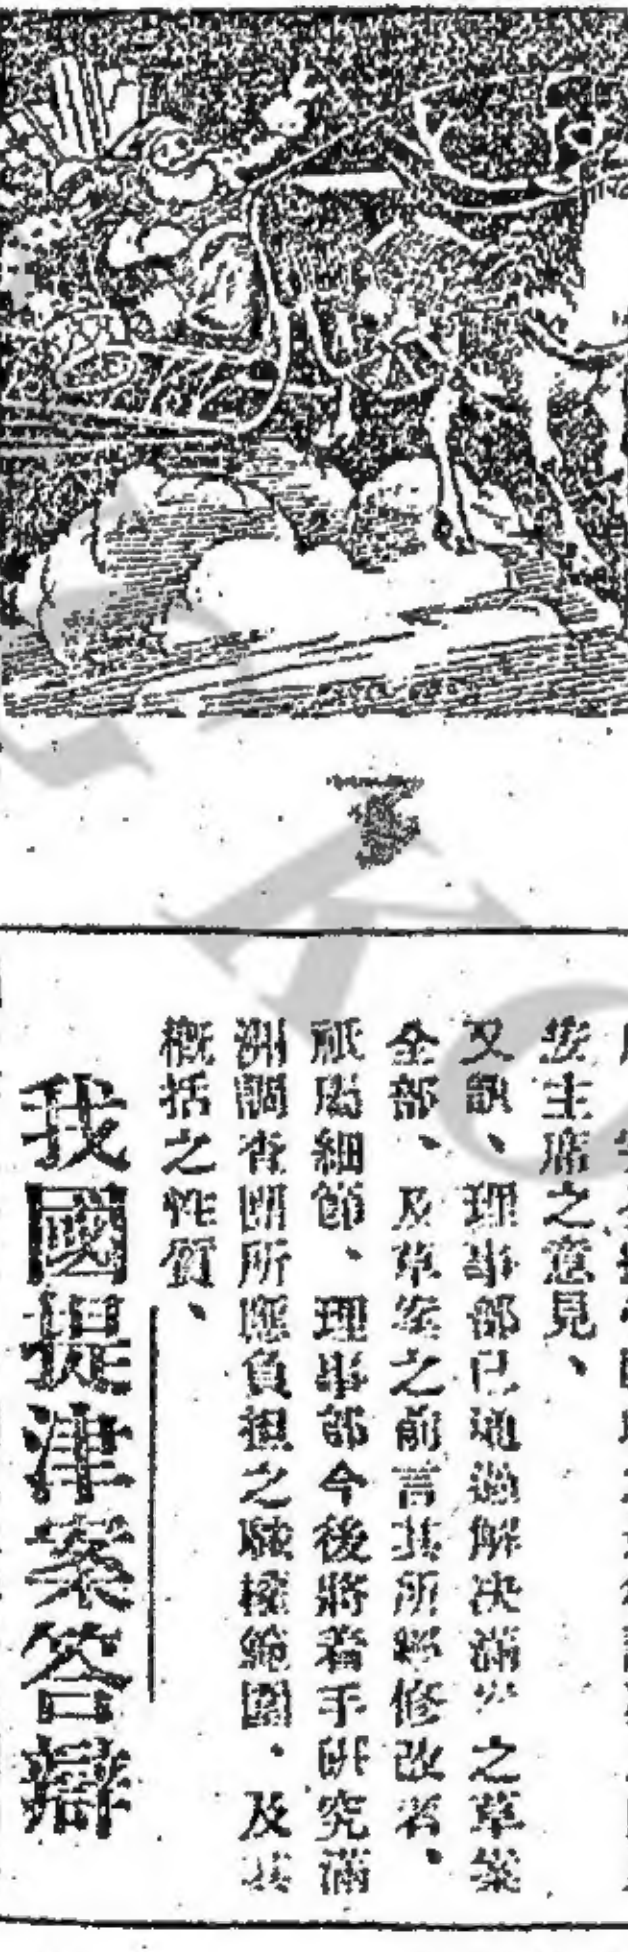 接主席之意見、
又訊、理事部已通過解决滿少之草案
全部、及草案之前言其所經修改者、
祇屬細節、理事部今後將着手研究滿
洲調查團所應負担之職權範圍、及其
概括之性質、
我國提津案答辯